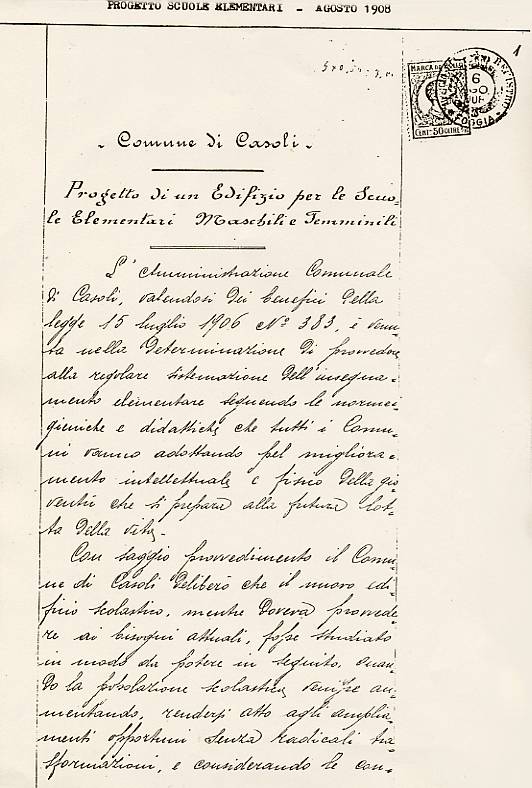 PROGETTO SCUOLE ELEMENTARI - AGOSTO 1908
1
MARCA DA BOLLO
CENT. 50 OLTRE
6
FOGGIA
- Comune di Casoli -
Progetto di un Edifizio per le Scuo-
le Elementari Maschili e Femminili
L'Amministrazione Comunale
di Casoli, valendosi dei benefici della
legge 15 luglio 1906 Nº 383, è venu-
ta nella determinazione di provvedere
alla regolare sistemazione dell'insegna-
mento elementare seguendo le norme i-
gieniche e didattiche che tutti i Comu-
ni vanno adottando pel migliora-
mento intellettuale e fisico della gio-
ventù che si prepara alla futura lot-
ta della vita.
Con saggio provvedimento il Comu-
ne di Casoli deliberò che il nuovo edi-
ficio scolastico, mentre doveva provvede-
re ai bisogni attuali, fosse studiato
in modo da potere in seguito, quan-
do la popolazione scolastica venisse au-
mentando, rendersi atto agli amplia-
menti opportuni senza radicali tra-
sformazioni, e considerando le con-